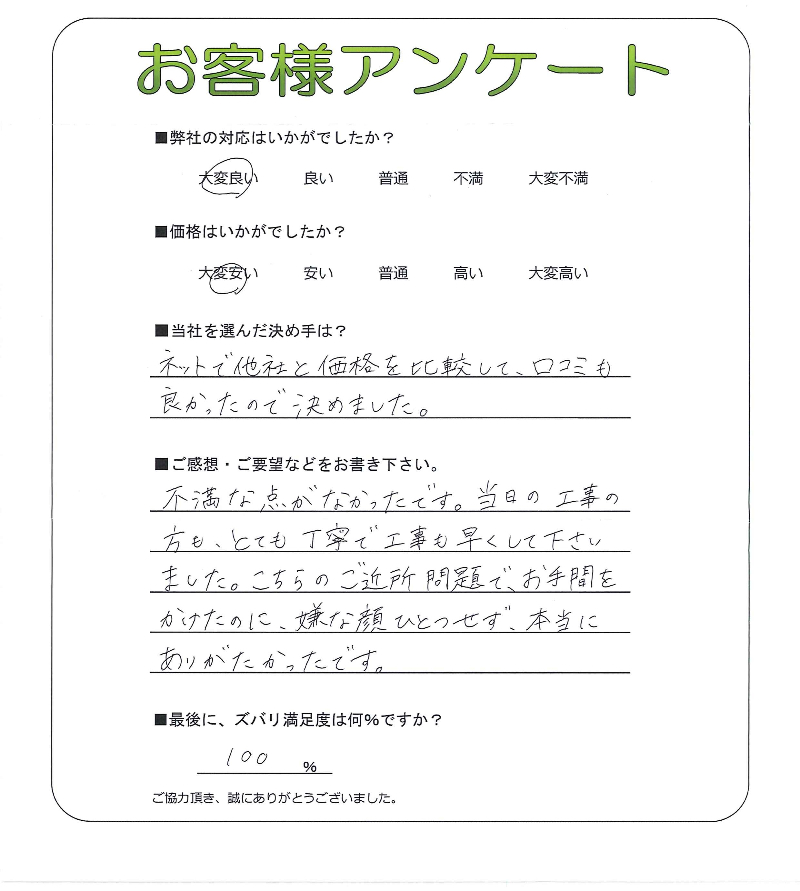 お客様アンケート
■弊社の対応はいかがでしたか？
大変良い 良い 普通 不満 大変不満
■価格はいかがでしたか？
大変安い 安い 普通 高い 大変高い
■当社を選んだ決め手は？
ネットで他社と価格を比較して、口コミも
良かったので決めました。
■ご感想・ご要望などをお書き下さい。
不満な点がなかったです。当日の工事の
方も、とても丁寧で工事も早くして下さい
ました。こちらのご近所問題で、お手間を
かけたのに、嫌な顔ひとつせず、本当に
ありがたかったです。
■最後に、ズバリ満足度は何%ですか？
100 %
ご協力頂き、誠にありがとうございました。